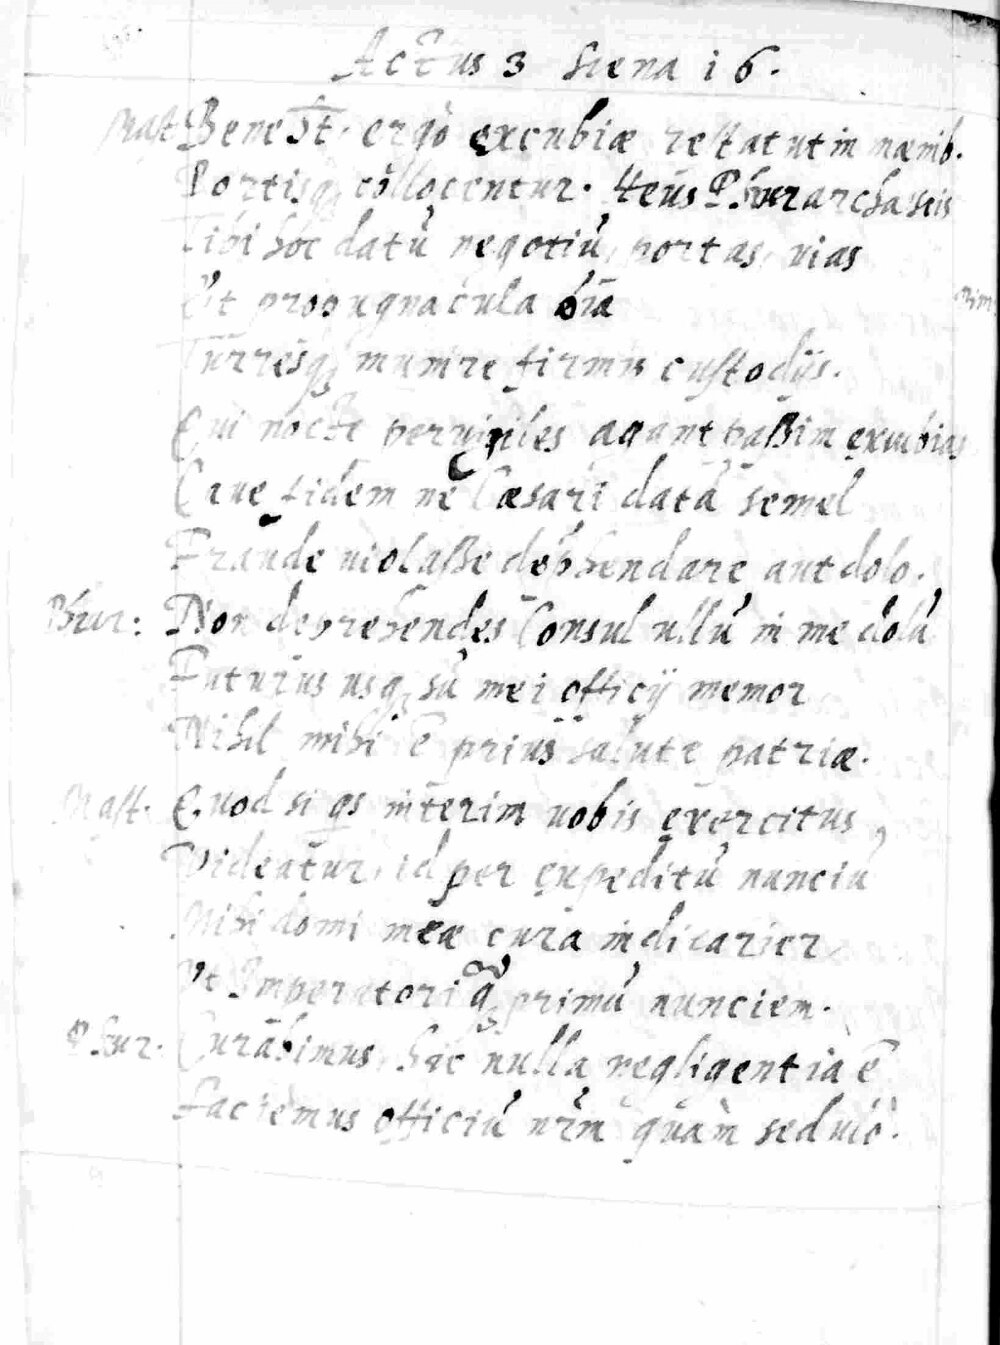 Actus 3 Scena 16.
Mast. Bene est. ergo excubiæ restat ut in mænib.
Portisq; collocentur. Heus Phurarcha scis
Tibi hoc datū negotiū, portas, vias
Et propugnacula oīa
Turresq; munire firmis custodijs.
Qui nocte pervigiles agant passim excubias
Cave fidem ne Cæsari datā semel
Fraude violasse dep̄hendare aut dolo.
Phur: Non deprehendes Consul ullū in me dolū
Futurus usq; sū mei officij memor
Nihil mihi ē prius salute patriæ.
Mast. Quod si qs interim vobis exercitus,
Videatur, id per expeditū nunciū
Mihi domi meæ cura indicarier
Vt Imperatori q̄ primū nunciem.
Phur. Curabimus, hic nulla negligentia ē
Faciemus officiū nrm quàm sedulò.